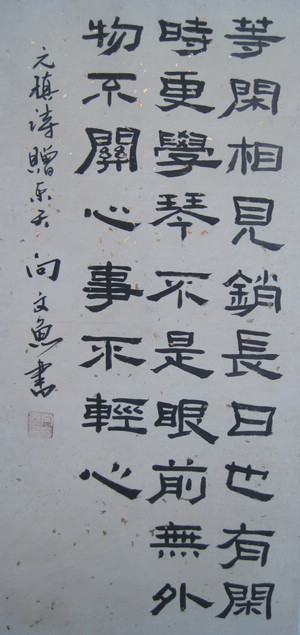 等閑相見銷長日也有閑
時更學琴不是眼前無外
物不關心事不輕心
元稹詩贈乐天 向文魚書